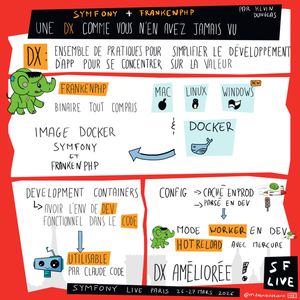 SYMFONY + FRANKENPHP
PAR KEVIN
DUNGLAS
UNE DX COMME VOUS N'EN AVEZ JAMAIS VU
DX: ENSEMBLE DE PRATIQUES POUR SIMPLIFIER LE DÉVELOPPEMENT
D'APP POUR SE CONCENTRER SUR LA VALEUR
FRANKENPHP
BINAIRE TOUT COMPRIS
MAC
LINUX
WINDOWS
NEW
&
DOCKER
IMAGE DOCKER
SYMFONY
ET
FRANKENPHP
DEVELOPMENT CONTAINERS
AVOIR L'ENV DE DEV
FONCTIONNEL DANS LE CODE
UTILISABLE
PAR CLAUDE CODE
CONFIG → CACHÉ EN PROD
→ PARSÉ EN DEV
MODE WORKER EN DEV
HOT RELOAD AVEC MERCURE
DX AMÉLIORÉE!
SF
LIVE
SYMFONY LIVE PARIS 26-27 MARS 2026